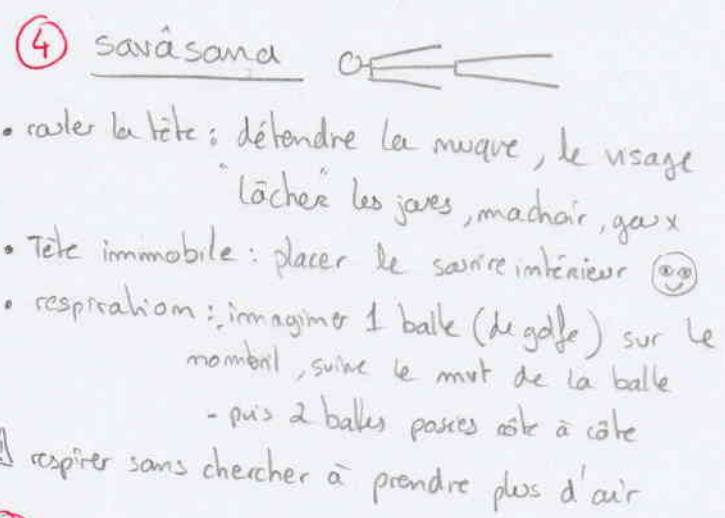 ④ savâsana
• rouler la tête : détendre la nuque, le visage
"lâcher" les joues, machoir, yeux
• Tête immobile : placer le sourire intérieur
• respiration : imaginer 1 balle (de golfe) sur le
nombril, suivre le mvt de la balle
- puis 2 balles posées côte à côte
respirer sans chercher à prendre plus d'air